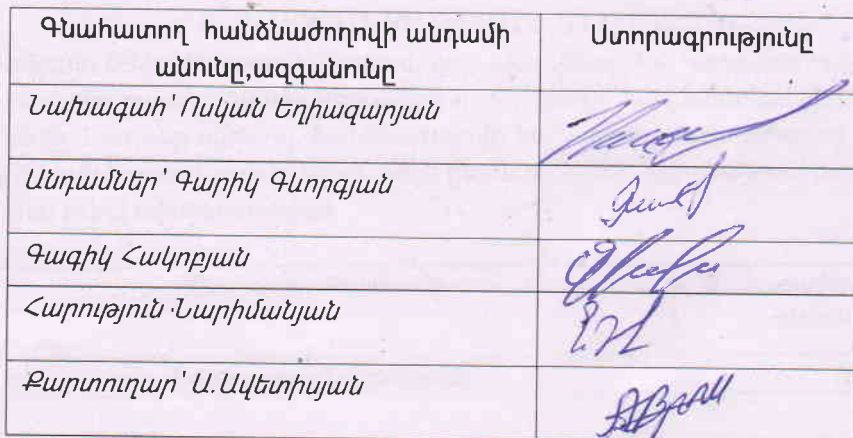 Գնահատող հանձնաժողովի անդամի Ստորագրությունը
անունը,ազգանունը
Նախագահ՝ Ոսկան Եղիազարյան
Անդամներ՝ Գարիկ Գևորգյան
Գագիկ Հակոբյան
Հարություն Նարիմանյան
Քարտուղար՝ Ա.Ավետիսյան